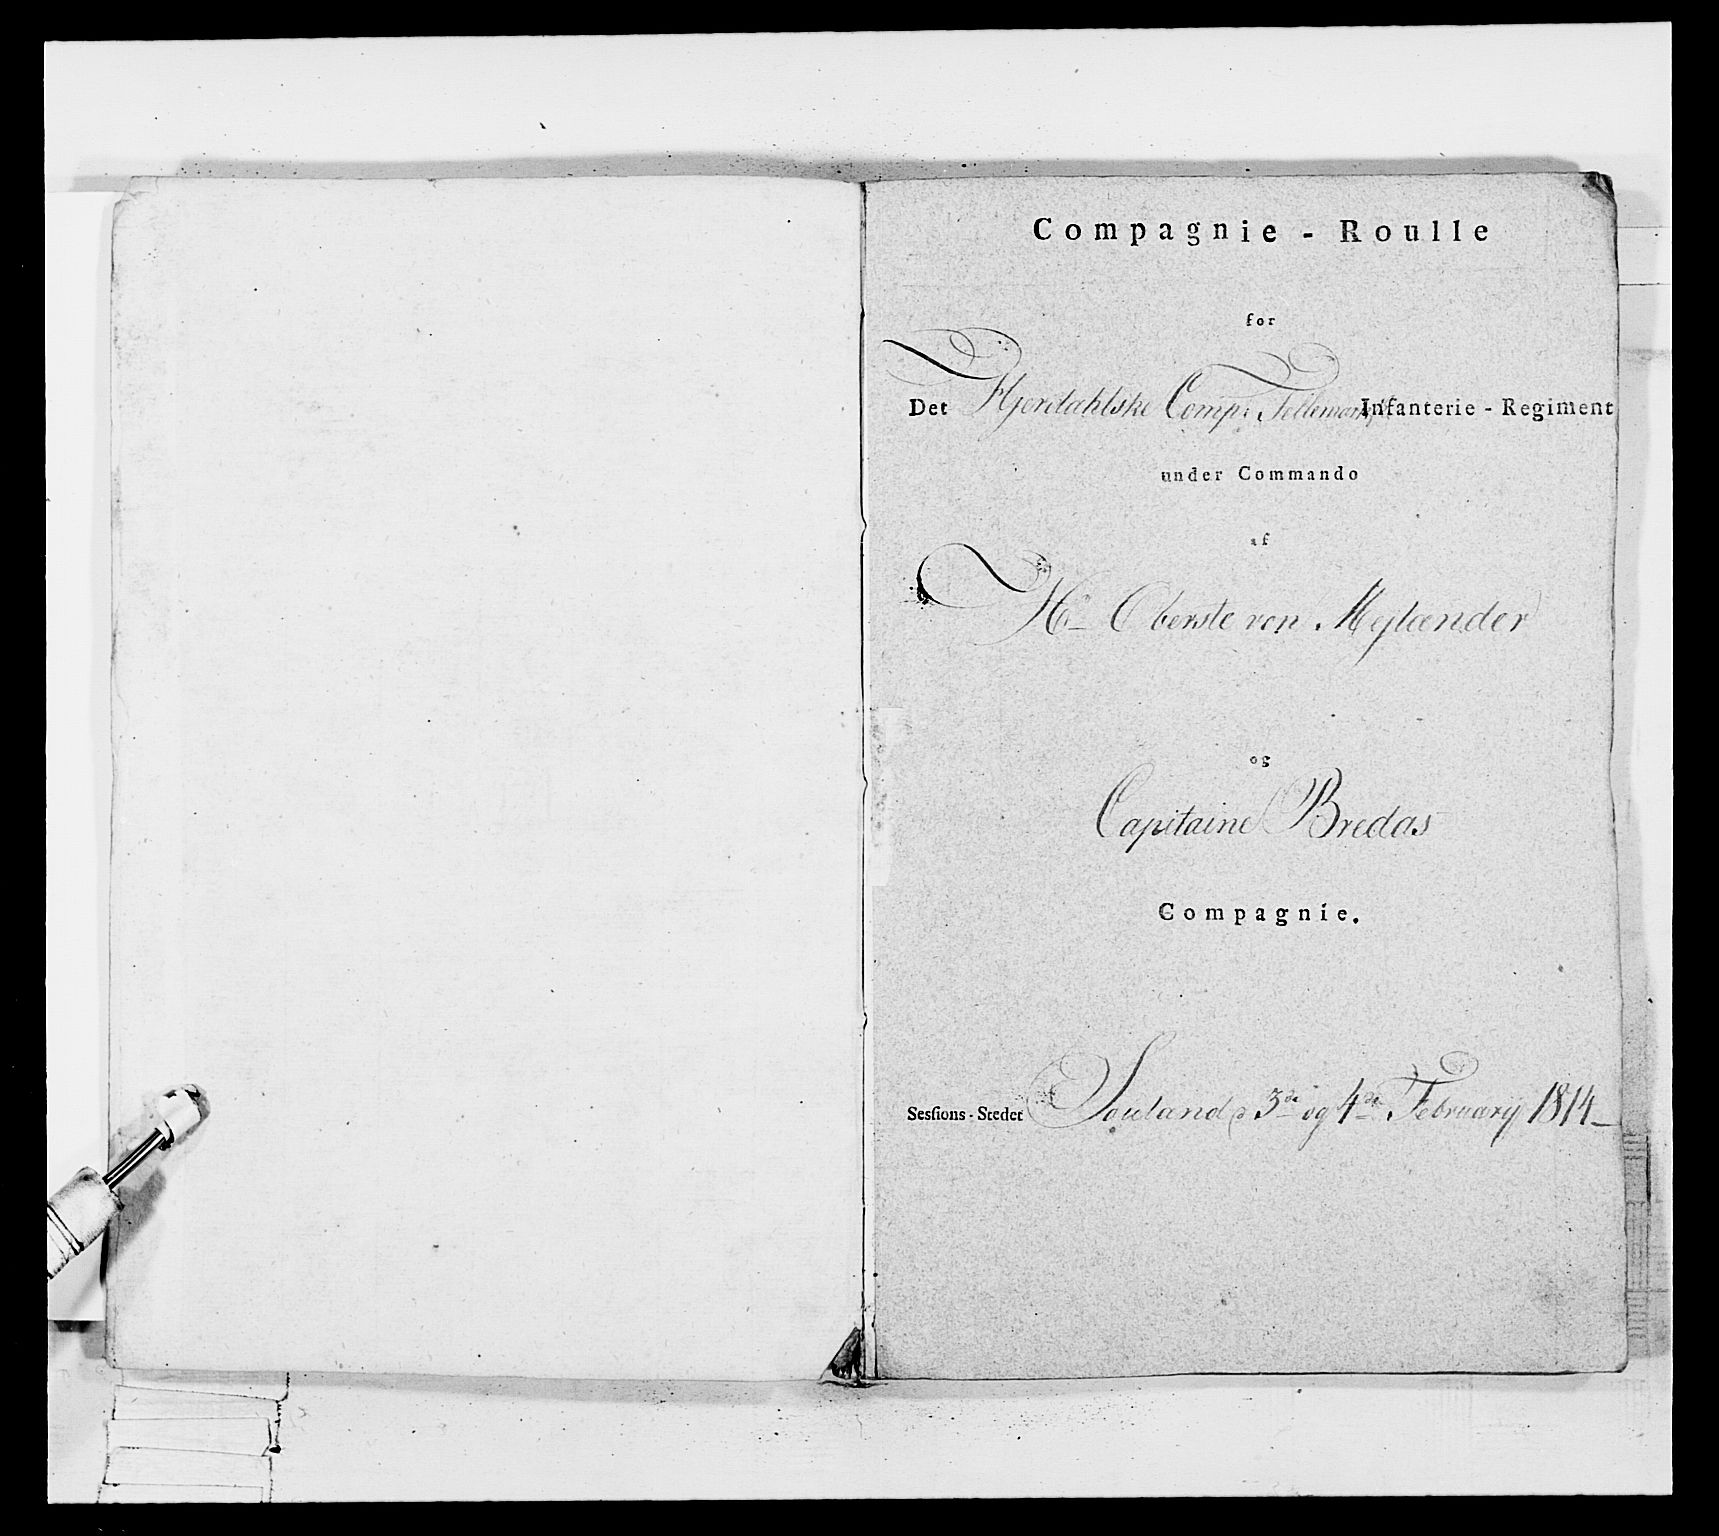 Compagnie - Roulle
for
Det Hjerdahlske Comp: Tellemark Infanterie - Regiment
under Commando
af
Hr Oberste von Mejlænder
og
Capitaine Bredas
Compagnie.
Sesſions-Stedet Souland d 3de og 4de February 1814